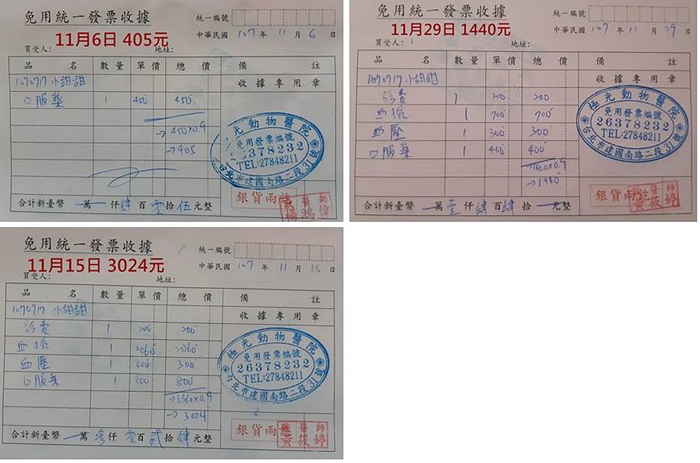 免用統一發票收據
11月6日 405元
統一編號
中華民國 107 年 11 月 6 日
買受人: 地址:
品 名 數 量 單 價 總 價 備 註
收據專用章
1070717 小甜甜
口服藥 1 450 450
→450x0.9
→405
極光動物醫院
免用發票編號
26378232
TEL:27848211
台北市建國南路二段31號
銀貨兩訖
合計新臺幣 萬 仟 肆 百 零 拾 伍 元整
免用統一發票收據
11月29日 1440元
統一編號
中華民國 107 年 11 月 29 日
買受人: 地址:
品 名 數 量 單 價 總 價 備 註
收據專用章
1070717 小甜甜
診費 1 200 200
血檢 1 700 700
血壓 1 300 300
口服藥 1 400 400
→1600x0.9
→1440
極光動物醫院
免用發票編號
26378232
TEL:27848211
台北市建國南路二段31號
銀貨兩訖
獸醫師
黃筱婷
合計新臺幣 萬 壹 仟 肆 百 肆 拾 元整
免用統一發票收據
11月15日 3024元
統一編號
中華民國 107 年 11 月 15 日
買受人: 地址:
品 名 數 量 單 價 總 價 備 註
收據專用章
1070717 小甜甜
診費 1 200 200
血檢 1 2060 2060
血壓 1 300 300
口服藥 1 800 800
→3360x0.9
→3024
極光動物醫院
免用發票編號
26378232
TEL:27848211
台北市建國南路二段31號
銀貨兩訖
獸醫師
黃筱婷
合計新臺幣 萬 參 仟 零 百 貳 拾 肆 元整